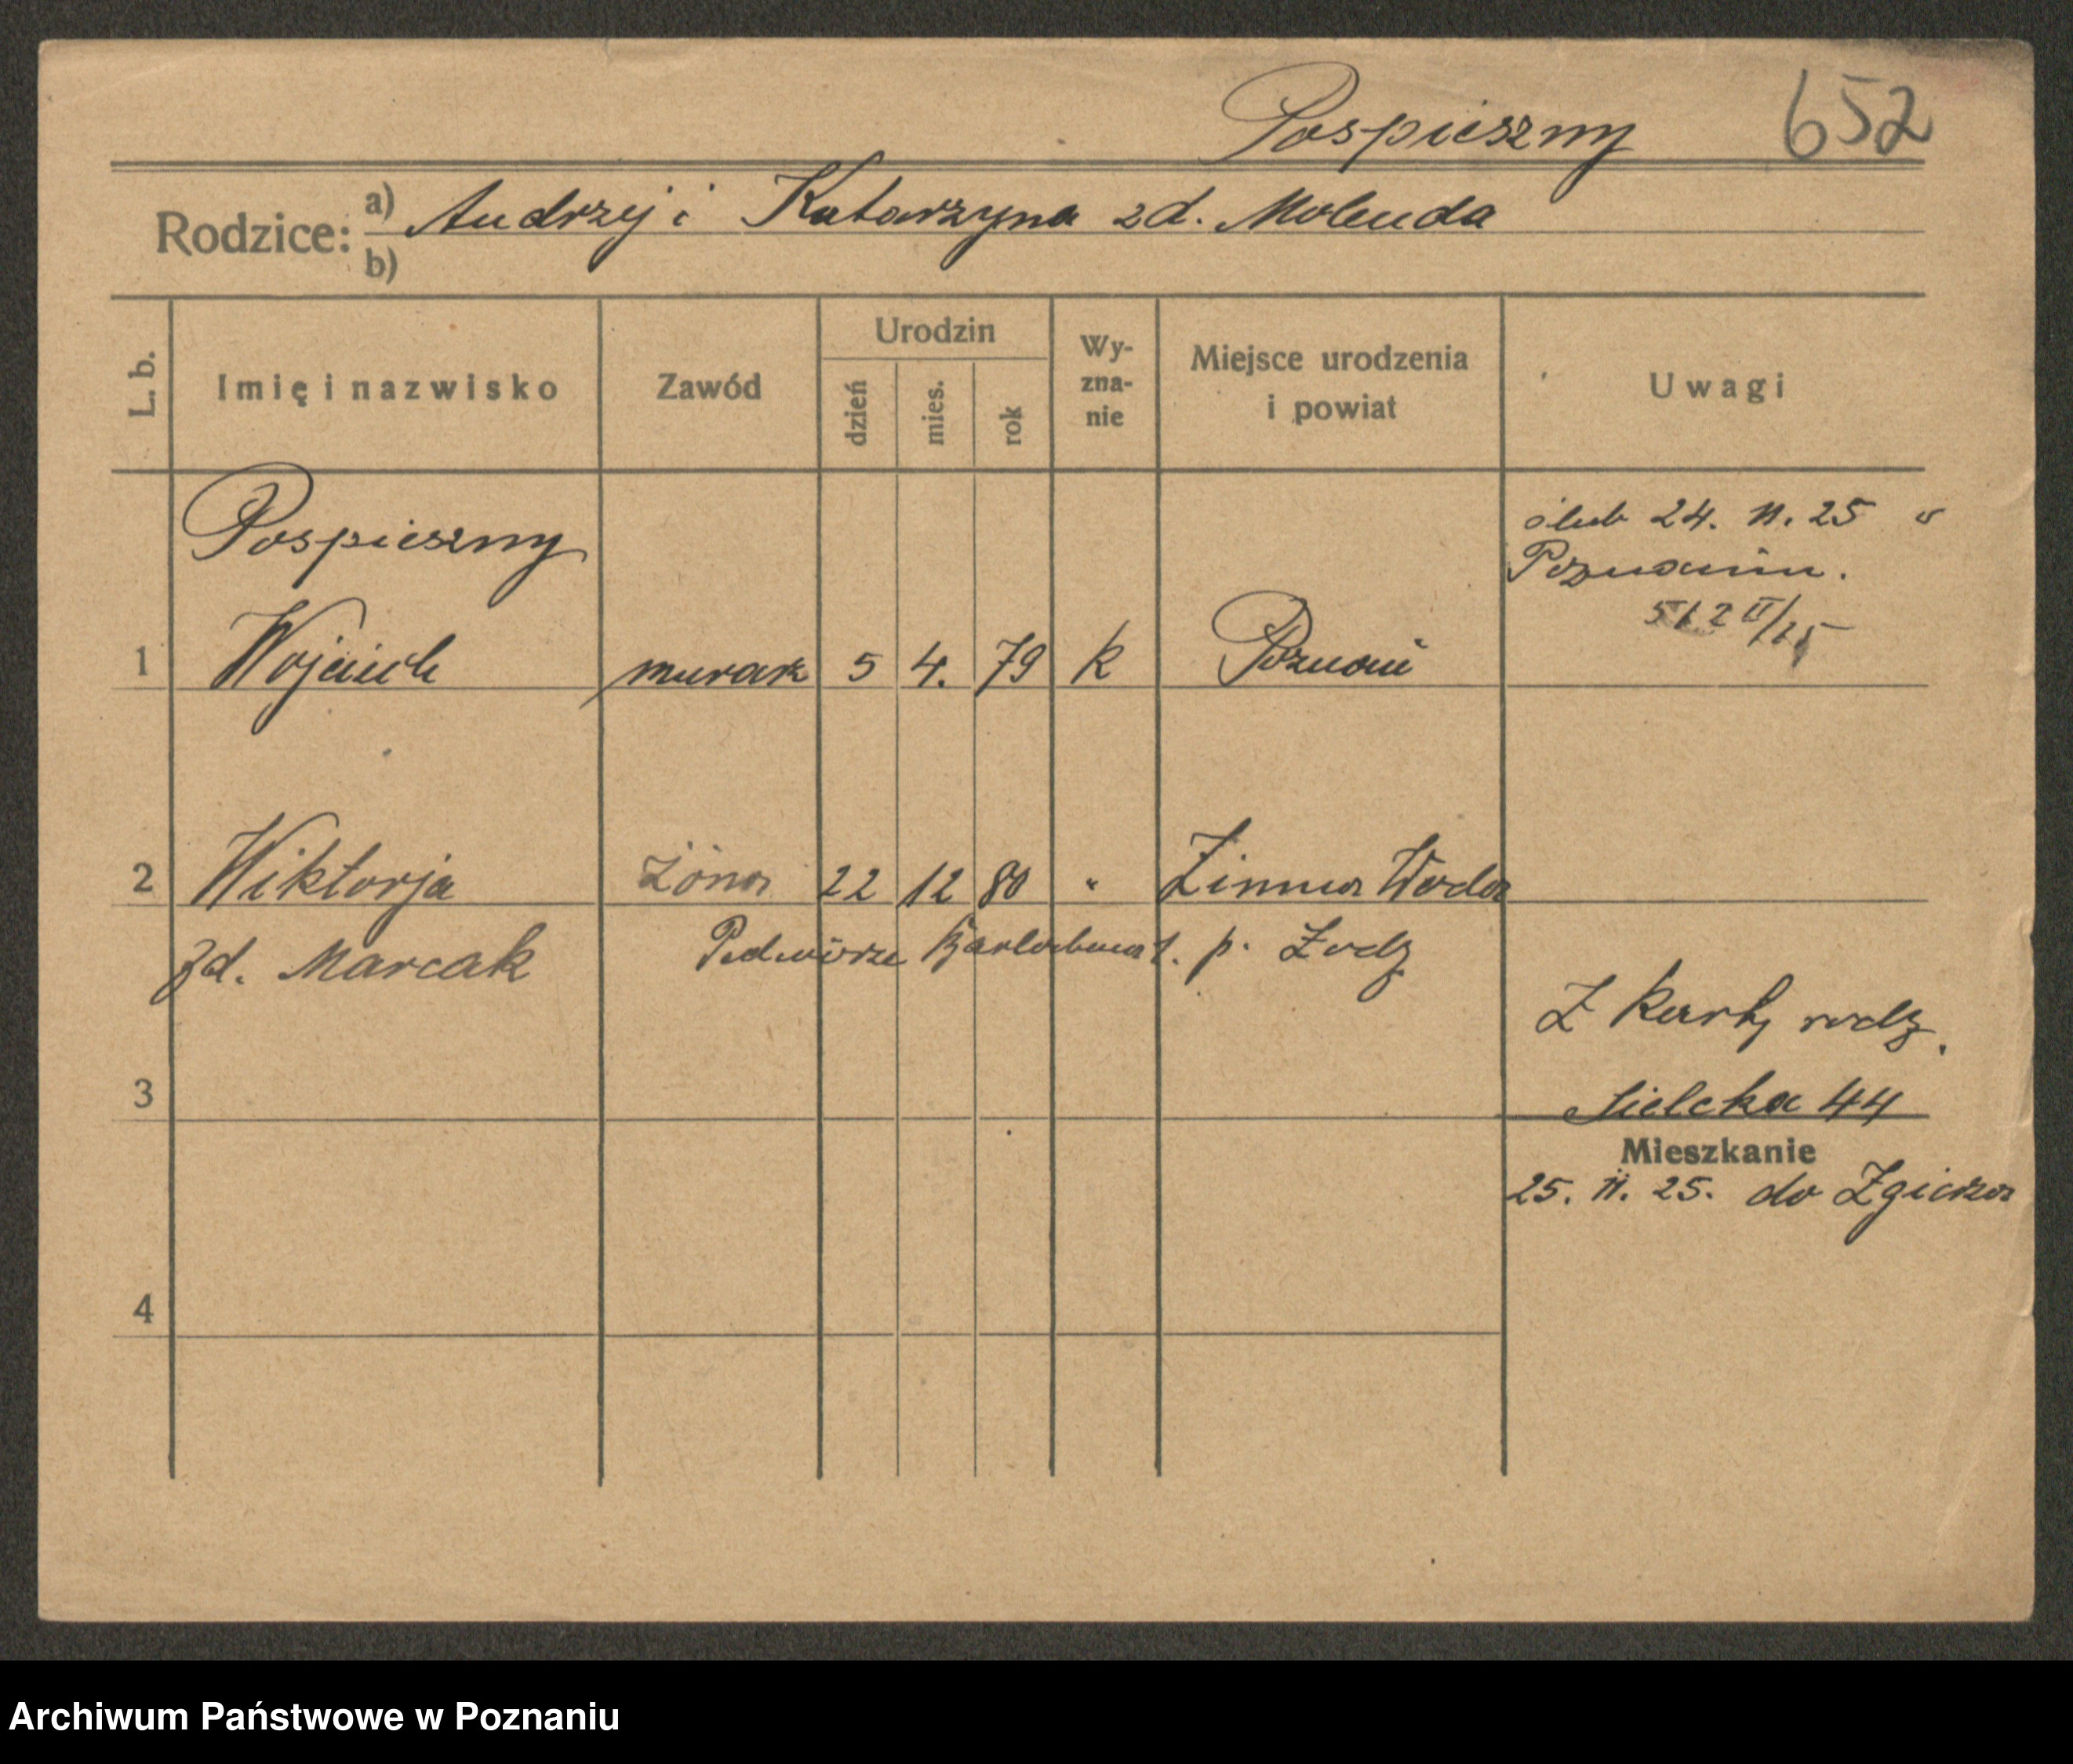 Pospieszny 652
Rodzice: a) Andrzej i Katarzyna zd. Molenda
b)
L. b.
Imię i nazwisko
Zawód
Urodzin
dzień
mies.
rok
Wy-
zna-
nie
Miejsce urodzenia
i powiat
Uwagi
ślub 24. 11. 25 w
Poznaniu.
512 II/25
Pospieszny
1 Wojciech murarz 5 4. 79 k Poznań
2 Wiktorja żona 22 12 80 " Zimna Woda
zd. Marcak Podwórze p. Łodz
Z karty rodz.
3
Sielcka 44
Mieszkanie
25. 11. 25. do Zgierza
4
Archiwum Państwowe w Poznaniu